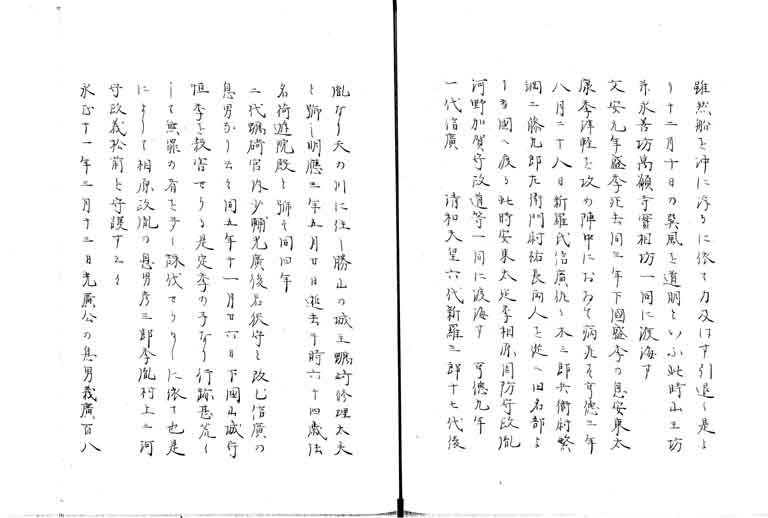 雖然船を沖に浮うに依て力及はす引退く是よ
り十二月十日の巽風を道明といふ此時山王坊
永善坊萬願寺實相坊一同に渡海す
文安元年盛季死去同三年下國盛季の息安東太
康季津軽を攻の陣中におゐて病死そ亨德三年
八月二十八日新羅氏信廣仕〻木三郎兵衛尉繁
綱工藤九郎左衛門尉祐長両人を従へ田名部よ
り當國へ渡る此時安東太定季相原周防守政胤
河野加賀守政道等一同に渡海す 亨德九年
一代信廣 清和天皇六代新羅三郎十七代後
胤なり天の川に住し勝山の城主蠣崎修理太夫
と号し明應三年五月廿日逝去于時六十四歳法
名荷遊院殿と号そ同四年
二代蠣崎宮内少輔光廣後若狭守と改む信廣の
息男なり云〻同五年十一月廿六日下國山城守
恒季を殺害せらる是定季の子なり行跡甚荒く
して無罪の者を多く誅伐せらるゝに依て也是
によりて相原政胤の息男彦三郎季胤村上三河
守政義松前を守護すといふ
永正十一年三月十三日光廣公の息男義廣百八